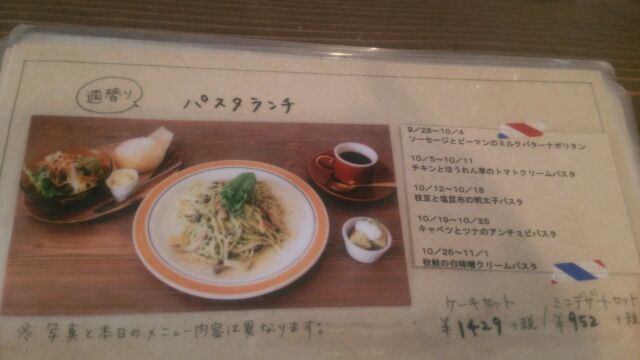 週替り
パスタランチ
9/28～10/4
ソーセージとピーマンのミルクバターナポリタン
10/5～10/11
チキンとほうれん草のトマトクリームパスタ
10/12～10/18
枝豆と塩昆布の明太子パスタ
10/19～10/25
キャベツとツナのアンチョビパスタ
10/26～11/1
秋鮭の白味噌クリームパスタ
ケーキセット / ミニデザートセット
¥1429+税 / ¥952+税
※ 写真と本日のメニュー内容は異なります。